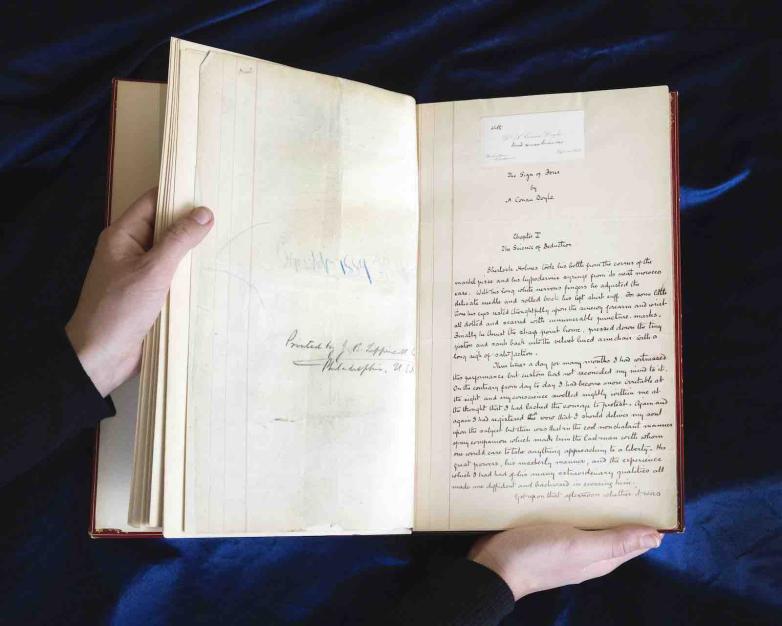 Printed by J. B. Lippincott C
Philadelphia, U.S.
With
Dr A. Conan Doyle's
kind remembrances
The Sign of Four
by
A Conan Doyle
Chapter I
The Science of Deduction
Sherlock Holmes took his bottle from the corner of the
mantel piece and his hypodermic syringe from its neat morocco
case. With his long white nervous fingers he adjusted the
delicate needle and rolled back his left shirt cuff. For some little
time his eyes rested thoughtfully upon the sinewy forearm and wrist
all dotted and scarred with innumerable puncture-marks.
Finally he thrust the sharp point home, pressed down the tiny
piston and sank back into the velvet lined arm chair with a
long sigh of satisfaction.
Three times a day for many months I had witnessed
this performance but custom had not reconciled my mind to it.
On the contrary from day to day I had become more irritable at
the sight and my conscience swelled nightly within me at
the thought that I had lacked the courage to protest. Again and
again I had registered the vow that I should deliver my soul
upon the subject but there was that in the cool nonchalant manner
of my companion which made him the last man with whom
one would care to take anything approaching to a liberty. His
great powers, his masterly manner, and the experience
which I had had of his many extraordinary qualities all
made me diffident and backward in crossing him.
Yet upon that afternoon whether it was